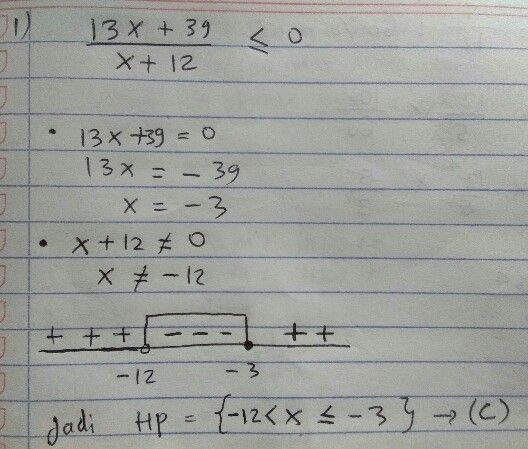 1) 13x + 39 / x + 12 ≤ 0
• 13x + 39 = 0
13x = - 39
x = - 3
• x + 12 ≠ 0
x ≠ - 12
+ + + - - - + +
-12 -3
Jadi HP = {-12 < x ≤ -3} → (C)